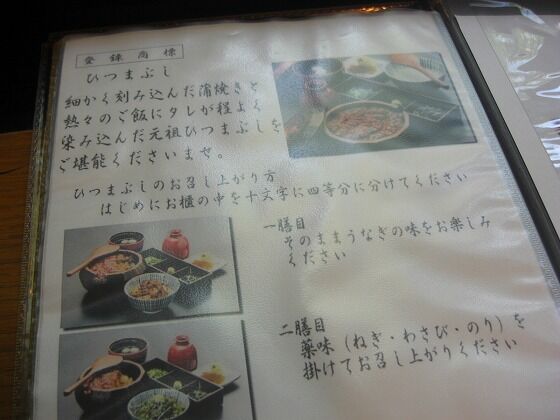 登録商標
ひつまぶし
細かく刻み込んだ蒲焼きと
熱々のご飯にタレが程よく
染み込んだ元祖ひつまぶしを
ご堪能くださいませ。
ひつまぶしのお召し上がり方
はじめにお櫃の中を十文字に四等分に分けてください
一膳目
そのままうなぎの味をお楽しみ
ください
二膳目
薬味(ねぎ・わさび・のり)を
掛けてお召し上がりください